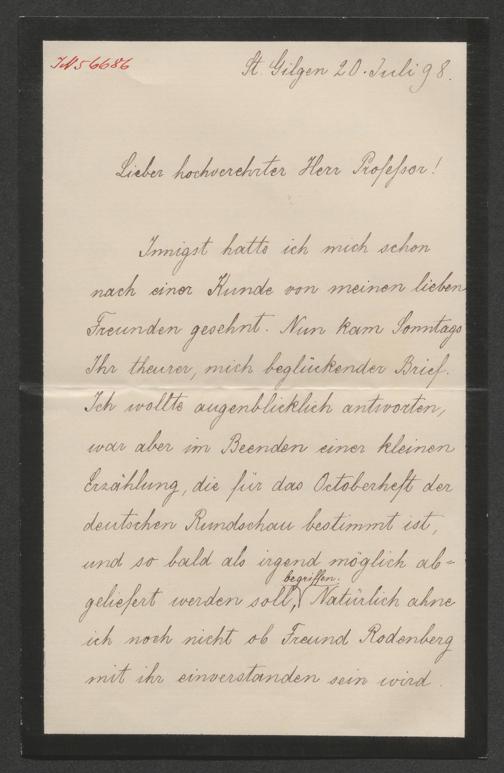 IN 56686
St. Gilgen 20. Juli 98.
Lieber hochverehrter Herr Professor!
Innigst hatte ich mich schon
nach einer Kunde von meinen lieben
Freunden gesehnt. Nun kam Sonntags
Ihr theurer, mich beglückender Brief.
Ich wollte augenblicklich antworten,
war aber im Beenden einer kleinen
Erzählung, die für das Octoberheft der
deutschen Rundschau bestimmt ist,
und so bald als irgend möglich ab=
geliefert werden soll, begriffen. Natürlich ahne
ich noch nicht ob Freund Rodenberg
mit ihr einverstanden sein wird.